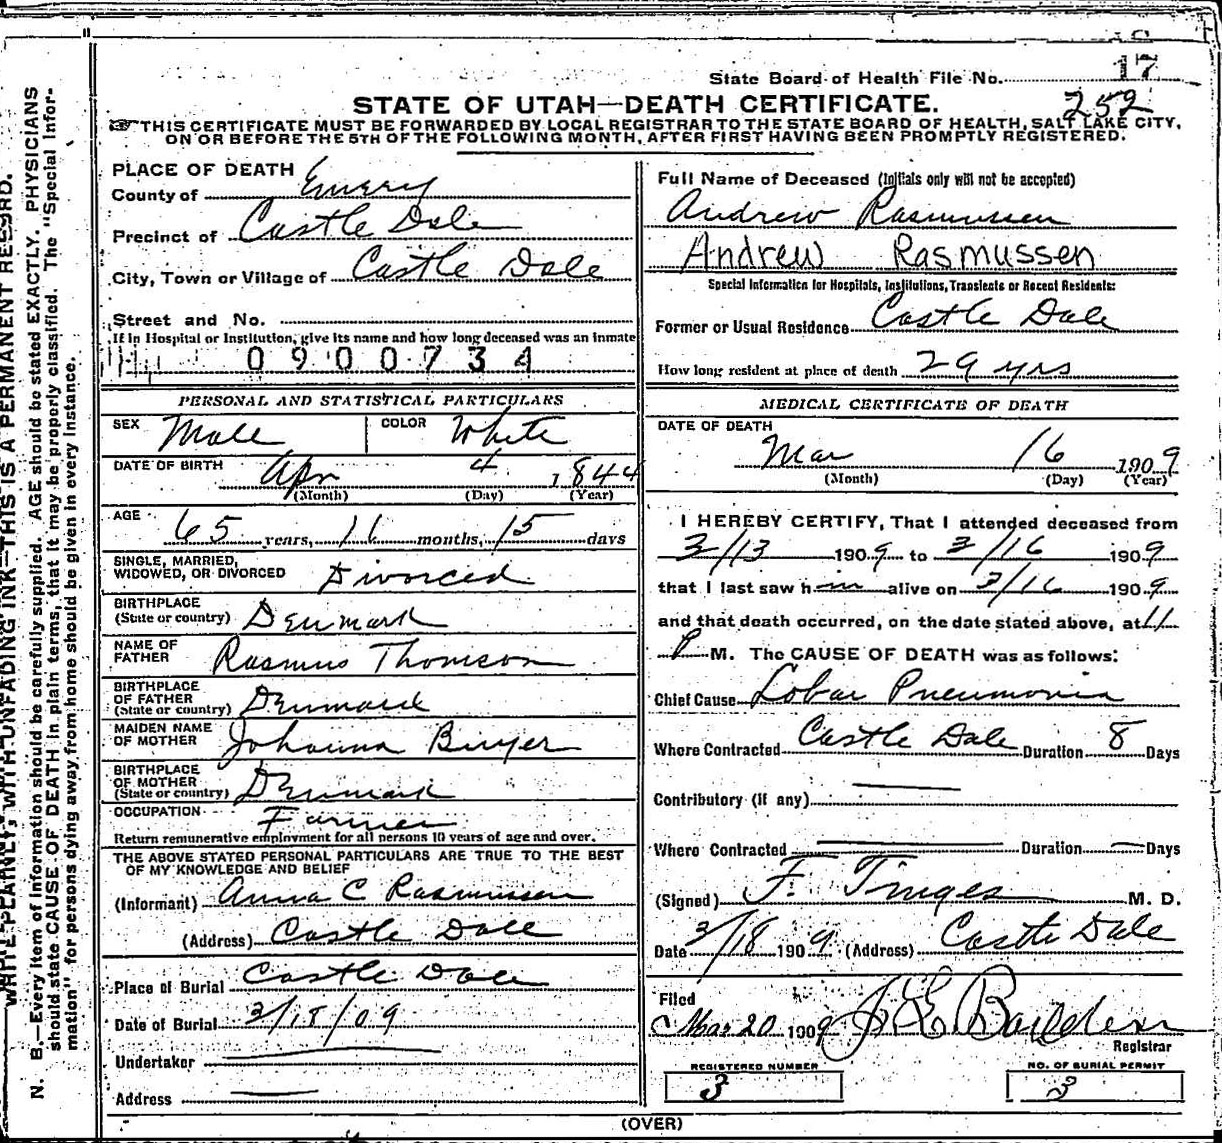 17
State Board of Health File No.
252
STATE OF UTAH—DEATH CERTIFICATE.
THIS CERTIFICATE MUST BE FORWARDED BY LOCAL REGISTRAR TO THE STATE BOARD OF HEALTH, SALT LAKE CITY,
ON OR BEFORE THE 5TH OF THE FOLLOWING MONTH, AFTER FIRST HAVING BEEN PROMPTLY REGISTERED.
WRITE PLAINLY, WITH UNFADING INK—THIS IS A PERMANENT RECORD.
N. B.—Every item of information should be carefully supplied. AGE should be stated EXACTLY. PHYSICIANS
should state CAUSE OF DEATH in plain terms, that it may be properly classified. The "Special Infor-
mation" for persons dying away from home should be given in every instance.
PLACE OF DEATH
County of Emery
Precinct of Castle Dale
City, Town or Village of Castle Dale
Street and No.
If in Hospital or Institution, give its name and how long deceased was an inmate
0900734
PERSONAL AND STATISTICAL PARTICULARS
SEX Male COLOR White
DATE OF BIRTH Apr 4 1844
(Month) (Day) (Year)
AGE 65 years, 11 months, 15 days
SINGLE, MARRIED,
WIDOWED, OR DIVORCED Divorced
BIRTHPLACE
(State or country) Denmark
NAME OF
FATHER Rasmus Thomson
BIRTHPLACE
OF FATHER
(State or country) Denmark
MAIDEN NAME
OF MOTHER Johanna
BIRTHPLACE
OF MOTHER
(State or country) Denmark
OCCUPATION Farmer
Return remunerative employment for all persons 10 years of age and over.
THE ABOVE STATED PERSONAL PARTICULARS ARE TRUE TO THE BEST
OF MY KNOWLEDGE AND BELIEF
(Informant) Anna C Rasmussen
(Address) Castle Dale
Place of Burial Castle Dale
Date of Burial 3/18/09
Undertaker
Address
Full Name of Deceased (Initials only will not be accepted)
Andrew Rasmussen
Andrew Rasmussen
Special Information for Hospitals, Institutions, Transients or Recent Residents:
Former or Usual Residence Castle Dale
How long resident at place of death 29 yrs
MEDICAL CERTIFICATE OF DEATH
DATE OF DEATH
Mar 16 1909
(Month) (Day) (Year)
I HEREBY CERTIFY, That I attended deceased from
3/13 1909 to 3/16 1909
that I last saw him alive on 3/16 1909
and that death occurred, on the date stated above, at 11
P M. The CAUSE OF DEATH was as follows:
Chief Cause Lobar Pneumonia
Where Contracted Castle Dale Duration 8 Days
Contributory (If any) —
Where Contracted — Duration — Days
(Signed) F. Tinges M. D.
Date 3/18 1909 (Address) Castle Dale
Filed
Mar 20 1909
Registrar
REGISTERED NUMBER
3
NO. OF BURIAL PERMIT
3
(OVER)